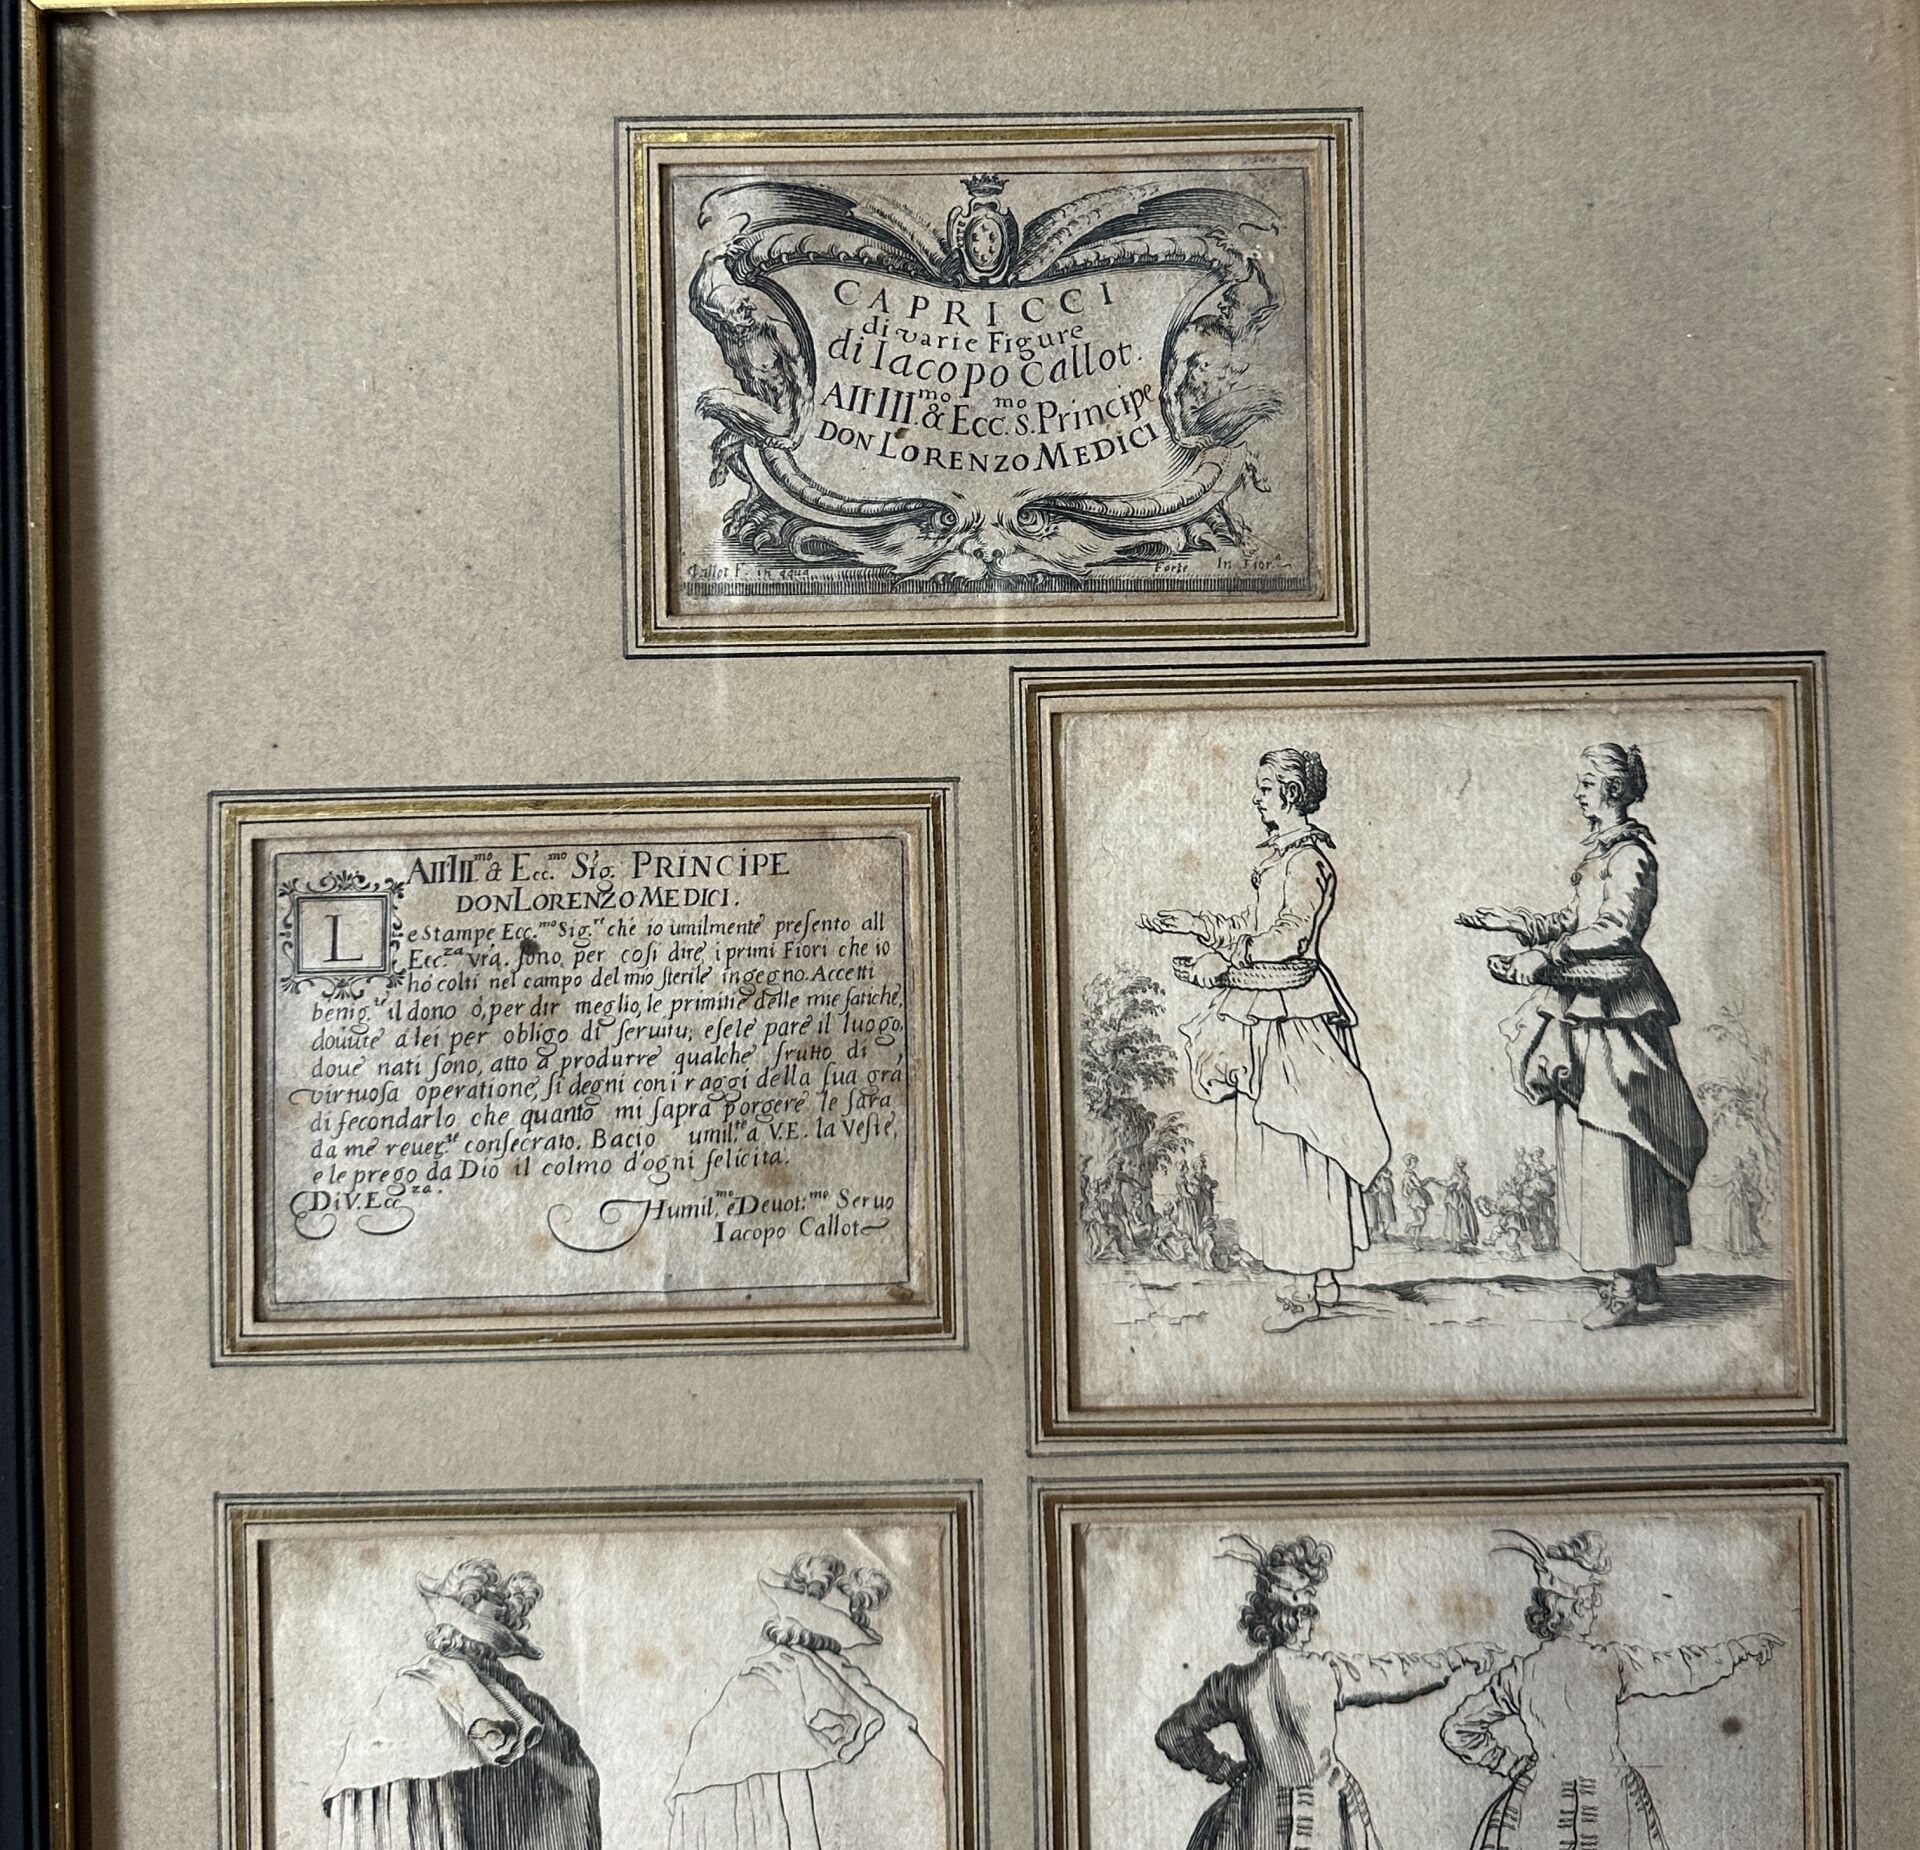 CAPRICCI
di varie Figure
di Iacopo Callot.
All Ill.mo & Ecc.mo S. Principe
DON LORENZO MEDICI
Callot F. in aqua Forte In Fior.a
All Ill.mo & Ecc.mo Sig.r PRINCIPE
DON LORENZO MEDICI.
Le Stampe Ecc.mo Sig.re che io umilmente presento all
Ecc.za vra. sono, per cosi dire, i primi Fiori che io
hó colti nel campo del mio sterile ingegno. Accetti
benig.te il dono ó, per dir meglio, le primitie delle mie fatiche,
douute a lei per obligo di seruitu; e se le pare il luogo,
doue nati sono, atto a produrre qualche frutto di
virtuosa operatione, si degni con i raggi della sua grã
di fecondarlo che quanto mi sapra porgere le sara
da me reuer.te consecrato. Bacio umil.te a V.E. la Veste,
e le prego da Dio il colmo d'ogni felicita.
Di V. Ecc.za.
Humil.mo e Deuot.mo Seruo
Iacopo Callot